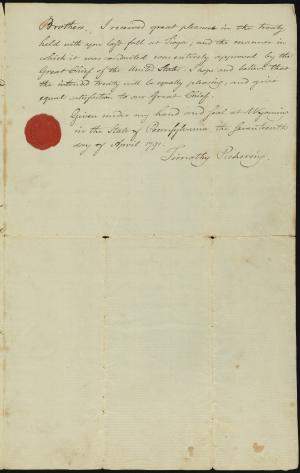 Brothers, I received great pleasure in the treaty
held with you last fall at Tioga; and the manner in
which it was conducted was entirely approved by the
Great Chief of the United States. I hope and believe that
the intended treaty will be equally pleasing, and give
equal satisfaction to our Great Chief.
Given under my hand and seal at Wyoming
in the State of Pennsylvania the seventeenth
day of April 1791.
Timothy Pickering